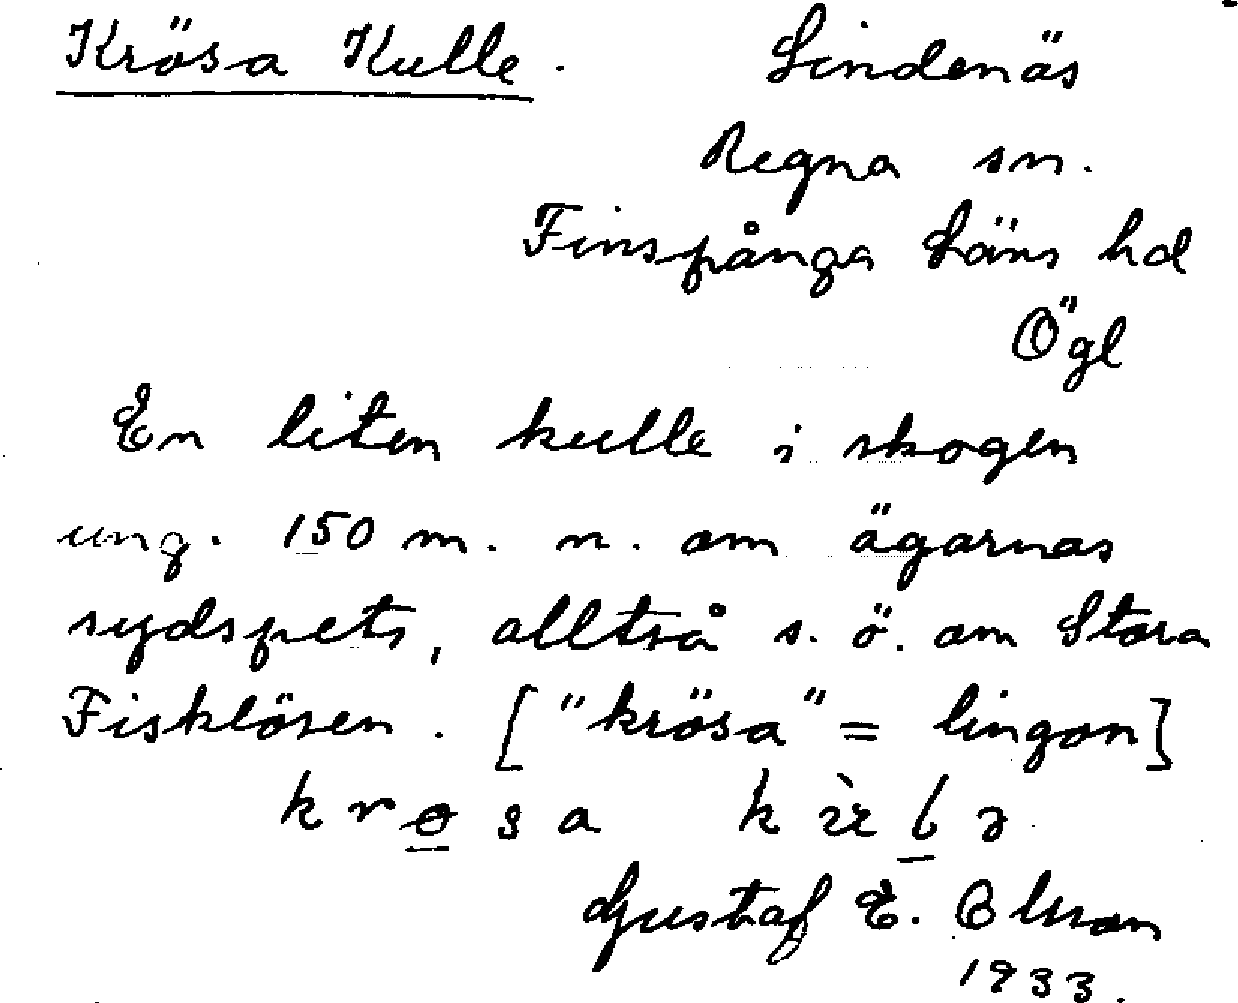 Krösa Kulle. Lindenäs
Regna sn.
Finspånga Läns hd
Ögl
En liten kulle i skogen
ung. 150 m. n. om ägarnas
sydspets, alltså s. ö. om Stora
Fisklösen. ["krösa" = lingon]
Gustaf E. Olsson
1933.